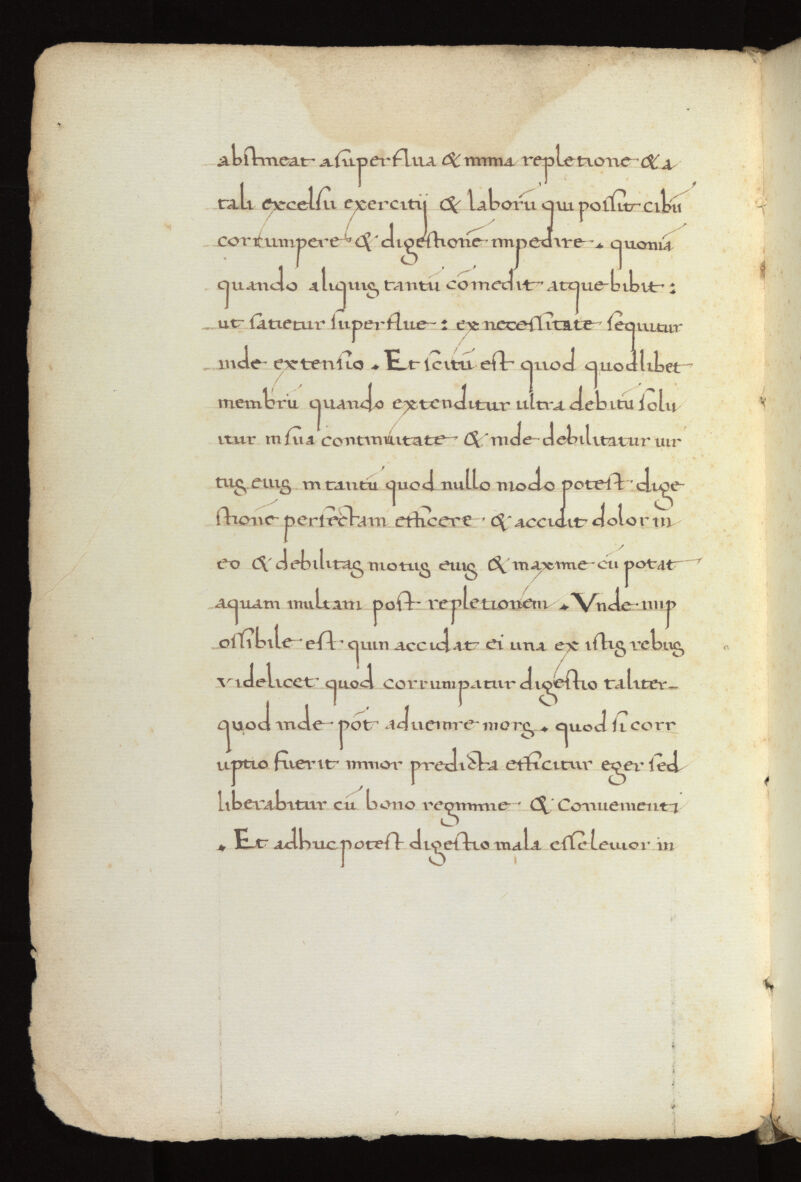 abstineat a superflua & nimia repletione & a
tali excelsu exercitij & laborū qui possit cibū
corrumpere & digestionē impedire . quoniā
quando aliquis tantū cōmedit atque bibit :
ut satietur superflue : ex necessitate sequitur
inde extensio . Et scitū est quod quodlibet
membrū quando extenditur ultra debitū solu
itur in sua continuitate & inde debilitatur uir
tus eius in tantū quod nullo modo potest dige
stionē perfectam efficere & accidit dolor in
eo & debilitas motus eius & maxime cū potat
aquam multam post repletionem . Vnde imp
ossibile est quin accidat ei una ex istis rebus
videlicet quod corrumpatur digestio taliter
quod inde pōt aduenire mors . quod si corr
uptio fuerit minor predicta efficitur eger sed
liberabitur cū bono regimine & Conuenienti
. Et adhuc potest digestio mala esse leuior in